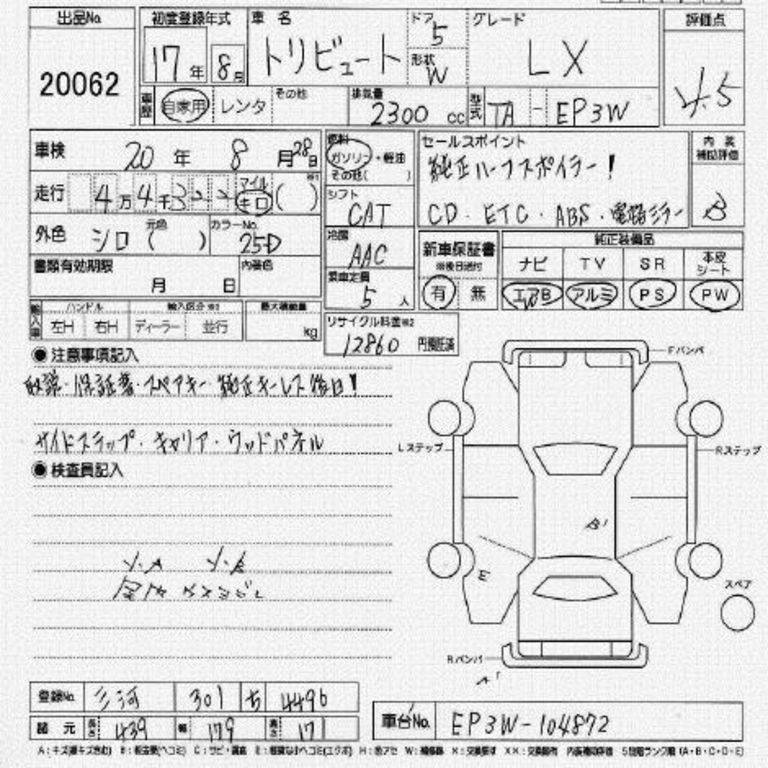 出品No. 初度登録年式 車名 ドア グレード 評価点
20062 17年 8月 トリビュート 5 形状 W LX 4.5
車歴 自家用 レンタ その他 排気量 2300 cc 型式 TA - EP3W
車検 20年 8月28日 燃料 ガソリン・軽油 その他( ) セールスポイント 内装補助評価
純正ハーフスポイラー!
走行 4万4千 マイル キロ ( ) シフト CAT CD・ETC・ABS・電格ミラー B
外色 シロ 元色 ( ) カラーNo. 25D 冷房 AAC 新車保証書 ※後日送付 純正装備品
ナビ TV SR 本皮シート
書類有効期限 月 日 内装色 乗車定員 5人 有 無 エアB アルミ PS PW
輸入車 ハンドル 左H 右H 輸入区分 ディーラー 並行 最大積載量 kg リサイクル料金※2 12860 円預託済
●注意事項記入
取説・保証書・スペアキー・純正キーレス後日!
サイドステップ・キャリア・ウッドパネル
●検査員記入
Fバンパ
Lステップ
Rステップ
B'
E
スペア
Rバンパ
A'
登録No. 三河 301 ち 4496
諸元 長さ 439 幅 179 高さ 171 車台No. EP3W-104872